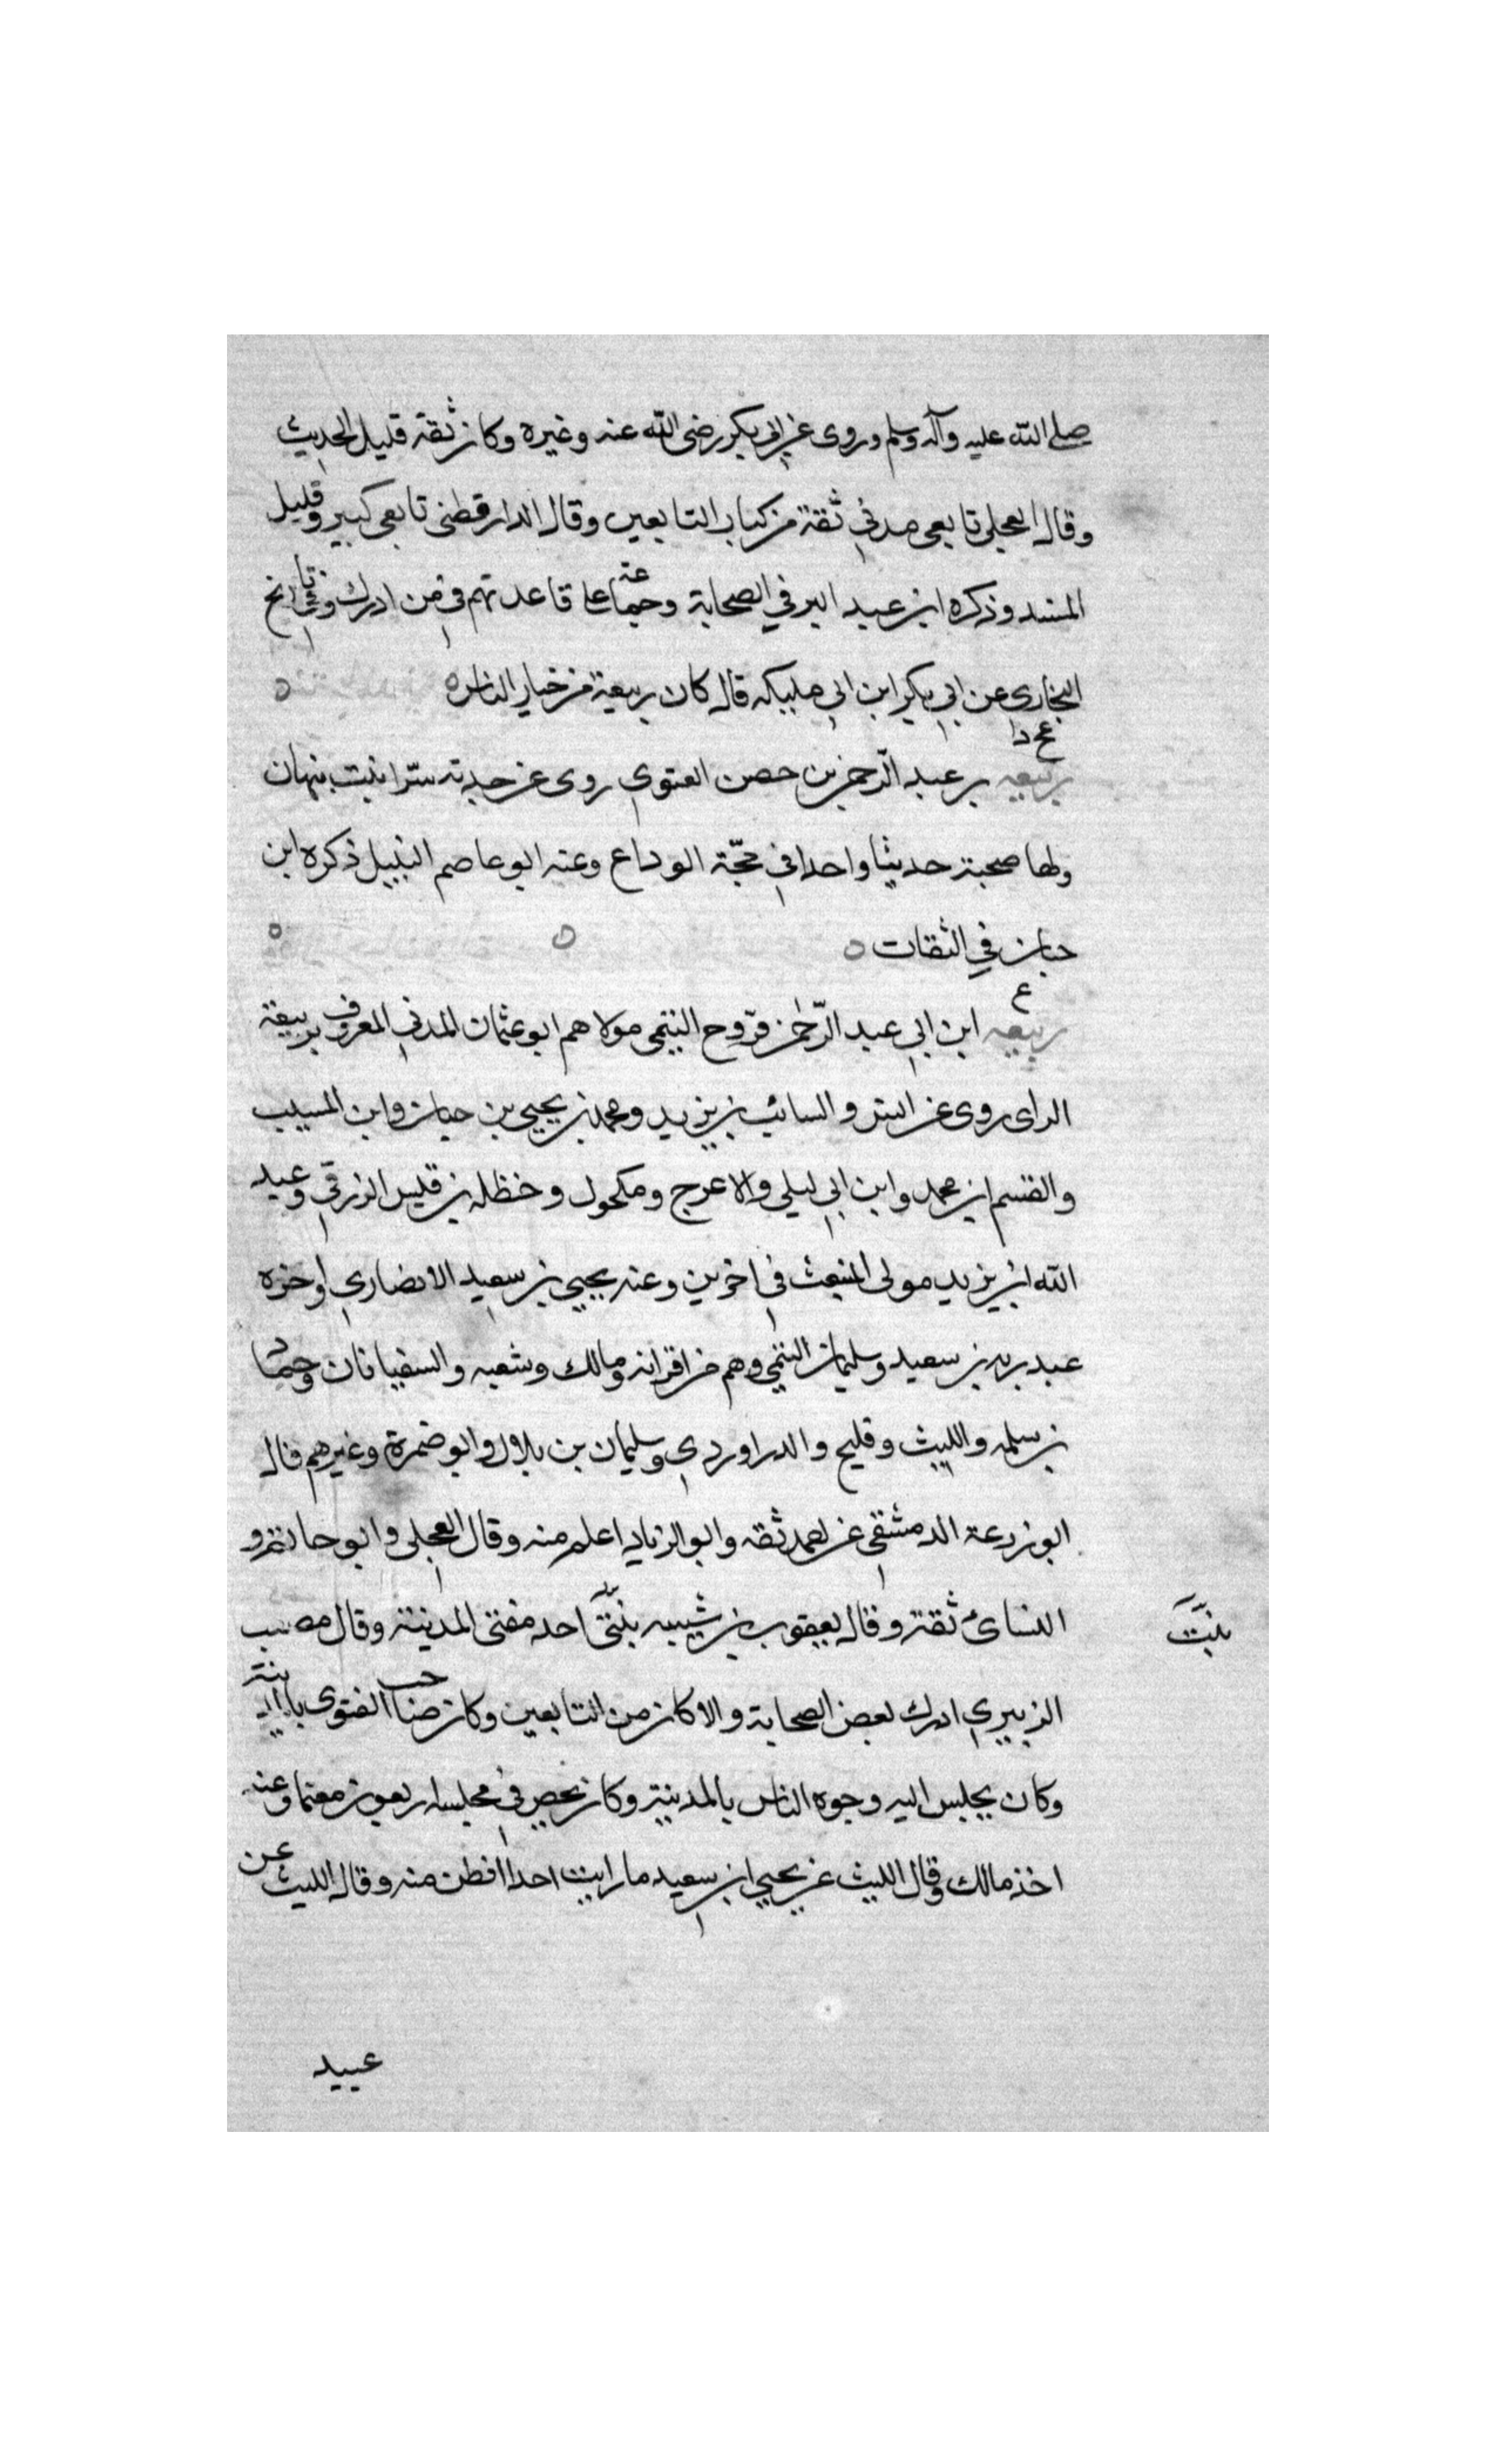 صلى الله عليه وآله وسلم وروى عن ابى بكر رضى الله عنه وغيره وكان ثقة قليل الحديث
وقال العجلى تابعى مدنى ثقة من كبار التابعين وقال الدارقطنى تابعى كبير وقليل
المسند وذكره ابن عبد البر في الصحابة وجماعة على قاعدتهم فى من ادرك وفى تاريخ
البخارى عن ابى بكر ابن ابى مليكه قال كان ربيعة من خيار الناس ه
عخ د
ربيعه بن عبد الرحمن بن حصن الغنوى روى عن جدته سرّا بنت بنهان
ولها صحبة حديثا واحدا فى حجّة الوداع وعنه ابو عاصم النبيل ذكره ابن
حبان في الثقات ه
ع
ربيعه ابن ابى عبد الرّحمٰن فرّوح التيمى مولاهم ابو عثمان المدنى المعروف بربيعة
الراى روى عن انس والسائب بن يزيد ومحمد بن يحيى بن حبان وابن المسيب
والقسم ابن محمد وابن ابى ليلى والاعرج ومكحول وحنظله بن قليس الزرقى وعبد
الله ابن يزيد مولى المنبعث فى اخرين وعنه يحيى بن سعيد الانصارى اوخوه
عبد ربه بن سعيد وسليمان التيمى وهم من اقرانه ومالك وشعبه والسفيانان وحماد
بن سلمه والليث وفليح والدراوردى وسليمان بن بلال وابو ضمرة وغيرهم قال
ابو زرعة الدمشقى عن احمد ثقه وابو الزناد اعلم منه وقال العجلى وابو حاتم و
النسائ ثقة وقال يعقوب بن شيبه احد مفتى المدينة وقال مصعب
ثبت
الزبيرى ادرك بعض الصحابة والاكابر من التابعين وكان صاحب الفتوى بالمدينة
وكان يجلس اليه وجوه الناس بالمدينة وكان يحصى فى مجلسه اربعون معتما وعنه
اخذ مالك وقال الليث عن يحيى ابن سعيد ما رايت احدا افطن منه وقال الليث عن
عبيد